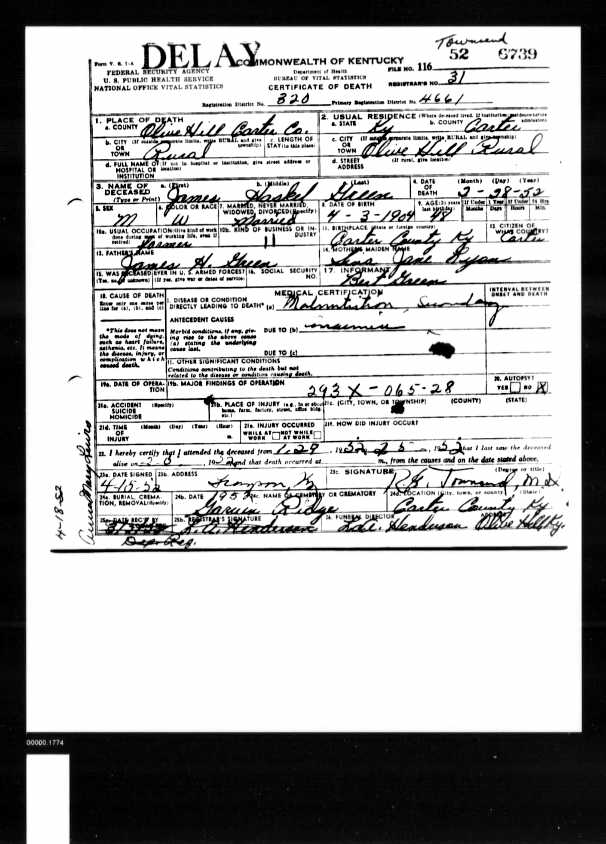 Townsend
Form V. S. 1-A DELAY COMMONWEALTH OF KENTUCKY FILE NO. 116 52 6739
FEDERAL SECURITY AGENCY Department of Health
U. S. PUBLIC HEALTH SERVICE BUREAU OF VITAL STATISTICS REGISTRAR'S NO. 31
NATIONAL OFFICE VITAL STATISTICS CERTIFICATE OF DEATH
Registration District No. 820 Primary Registration District No. 4661
1. PLACE OF DEATH 2. USUAL RESIDENCE (Where deceased lived. If institution, residence before admission).
a. COUNTY Olive Hill Carter Co. a. STATE Ky b. COUNTY Carter
b. CITY (If outside corporate limits, write RURAL and give township) OR TOWN Rural c. LENGTH OF STAY (in this place) c. CITY (If outside corporate limits, write RURAL and give township) OR TOWN Olive Hill Rural
d. FULL NAME OF (If not in hospital or institution, give street address or location) HOSPITAL OR INSTITUTION d. STREET ADDRESS (If rural, give location)
3. NAME OF DECEASED (Type or Print) a. (First) James b. (Middle) Haskel c. (Last) Green 4. DATE OF DEATH (Month) (Day) (Year) 2-28-52
5. SEX M 6. COLOR OR RACE W 7. MARRIED, NEVER MARRIED, WIDOWED, DIVORCED (Specify) Married 8. DATE OF BIRTH 4-3-1904 9. AGE (In years last birthday) 48 If Under 1 Year Months Days If Under 24 Hrs. Hours Min.
10a. USUAL OCCUPATION (Give kind of work done during most of working life, even if retired) Farmer 10b. KIND OF BUSINESS OR INDUSTRY 11 11. BIRTHPLACE (State or foreign country) Carter County Ky 12. CITIZEN OF WHAT COUNTRY? Carter
13. FATHER'S NAME James H. Green 14. MOTHER'S MAIDEN NAME Lena Jane Ryan
15. WAS DECEASED EVER IN U. S. ARMED FORCES? (Yes, no, or unknown) (If yes, give war or dates of service) 16. SOCIAL SECURITY NO. 17. INFORMANT Bert Green
18. CAUSE OF DEATH MEDICAL CERTIFICATION INTERVAL BETWEEN ONSET AND DEATH
Enter only one cause per line for (a), (b), and (c) I. DISEASE OR CONDITION DIRECTLY LEADING TO DEATH* (a) Malnutrition, Secondary
ANTECEDENT CAUSES
*This does not mean the mode of dying, such as heart failure, asthenia, etc. It means the disease, injury, or complication which caused death. Morbid conditions, if any, giving rise to the above cause (a) stating the underlying cause last. DUE TO (b)
DUE TO (c)
II. OTHER SIGNIFICANT CONDITIONS
Conditions contributing to the death but not related to the disease or condition causing death.
19a. DATE OF OPERATION 19b. MAJOR FINDINGS OF OPERATION 293X-065-28 20. AUTOPSY? YES NO X
21a. ACCIDENT SUICIDE HOMICIDE (Specify) 21b. PLACE OF INJURY (e.g., in or about home, farm, factory, street, office bldg., etc.) 21c. (CITY, TOWN, OR TOWNSHIP) (COUNTY) (STATE)
21d. TIME OF INJURY (Month) (Day) (Year) (Hour) m. 21e. INJURY OCCURRED WHILE AT WORK NOT WHILE AT WORK 21f. HOW DID INJURY OCCUR?
22. I hereby certify that I attended the deceased from 1-29, 1952, 2-5, 1952 that I last saw the deceased
alive on 2-5, 1952 and that death occurred at m., from the causes and on the date stated above.
23a. DATE SIGNED 4-15-52 23b. ADDRESS 23c. SIGNATURE Townsend, M.D. (Degree or title)
24a. BURIAL, CREMATION, REMOVAL (Specify) 24b. DATE 1952 24c. NAME OF CEMETERY OR CREMATORY Garvin Ridge 24d. LOCATION (City, town, or county) (State) Carter County Ky
25a. DATE REC'D BY 25b. REGISTRAR'S SIGNATURE Henderson 26. FUNERAL DIRECTOR Henderson ADDRESS Olive Hill Ky.
Dep. Reg.
4-18-52
00000.1774